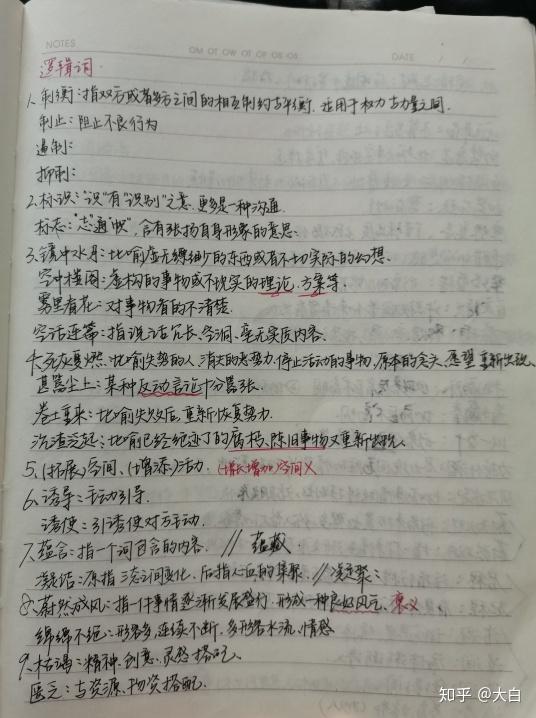 NOTES
DATE / /
逻辑词
1、制衡：指双方或者多方之间的相互制约与平衡，适用于权力与力量之间.
制止：阻止不良行为
遏制：
抑制：
2、标识："识"有"识别"之意，更多是一种沟通.
标志："志"通"帜"，含有张扬自身形象的意思.
3、镜中水月：比喻虚无缥缈的东西或者不切实际的幻想.
空中楼阁：虚构的事物或不现实的理论、方案等.
雾里看花：对事物看的不清楚.
空话连篇：指说话冗长、空洞、毫无实质内容.
4、死灰复燃：比喻失势的人、消失的势力、停止活动的事物、原本的念头、愿望重新出现.
甚嚣尘上：某种反动言论十分嚣张.
卷土重来：比喻失败后，重新恢复势力.
沉渣泛起：比喻已经绝迹了的腐朽、陈旧事物又重新出现.
5、(拓展)空间、(增添)活力. (增长增加)空间X
6、诱导：主动引导.
诱使：引诱使对方主动.
7、蕴含：指一个词包含的内容. // 蕴藏
凝结：原指三态之间变化，后指心血的集聚. // 凝聚：
8、蔚然成风：指一件事情逐渐发展盛行，形成一种良好风气，褒义
绵绵不绝：形容多，连续不断，多形容水流、情感
9、枯竭：精神、创意、灵感搭配.
匮乏：与资源、物资搭配.
知乎 @大白